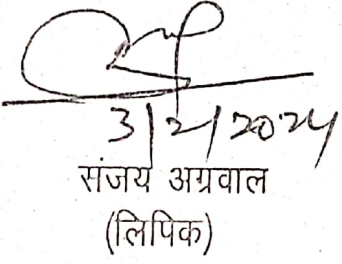 3/2/2024
संजय अग्रवाल
(लिपिक)